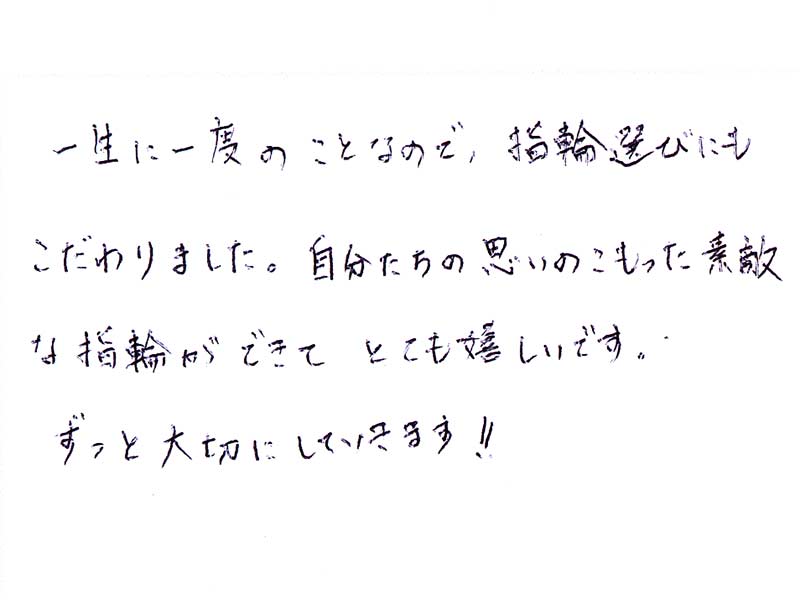 一生に一度のことなので、指輪選びにも
こだわりました。自分たちの思いのこもった素敵
な指輪ができて とても嬉しいです。
ずっと大切にしていきます!!